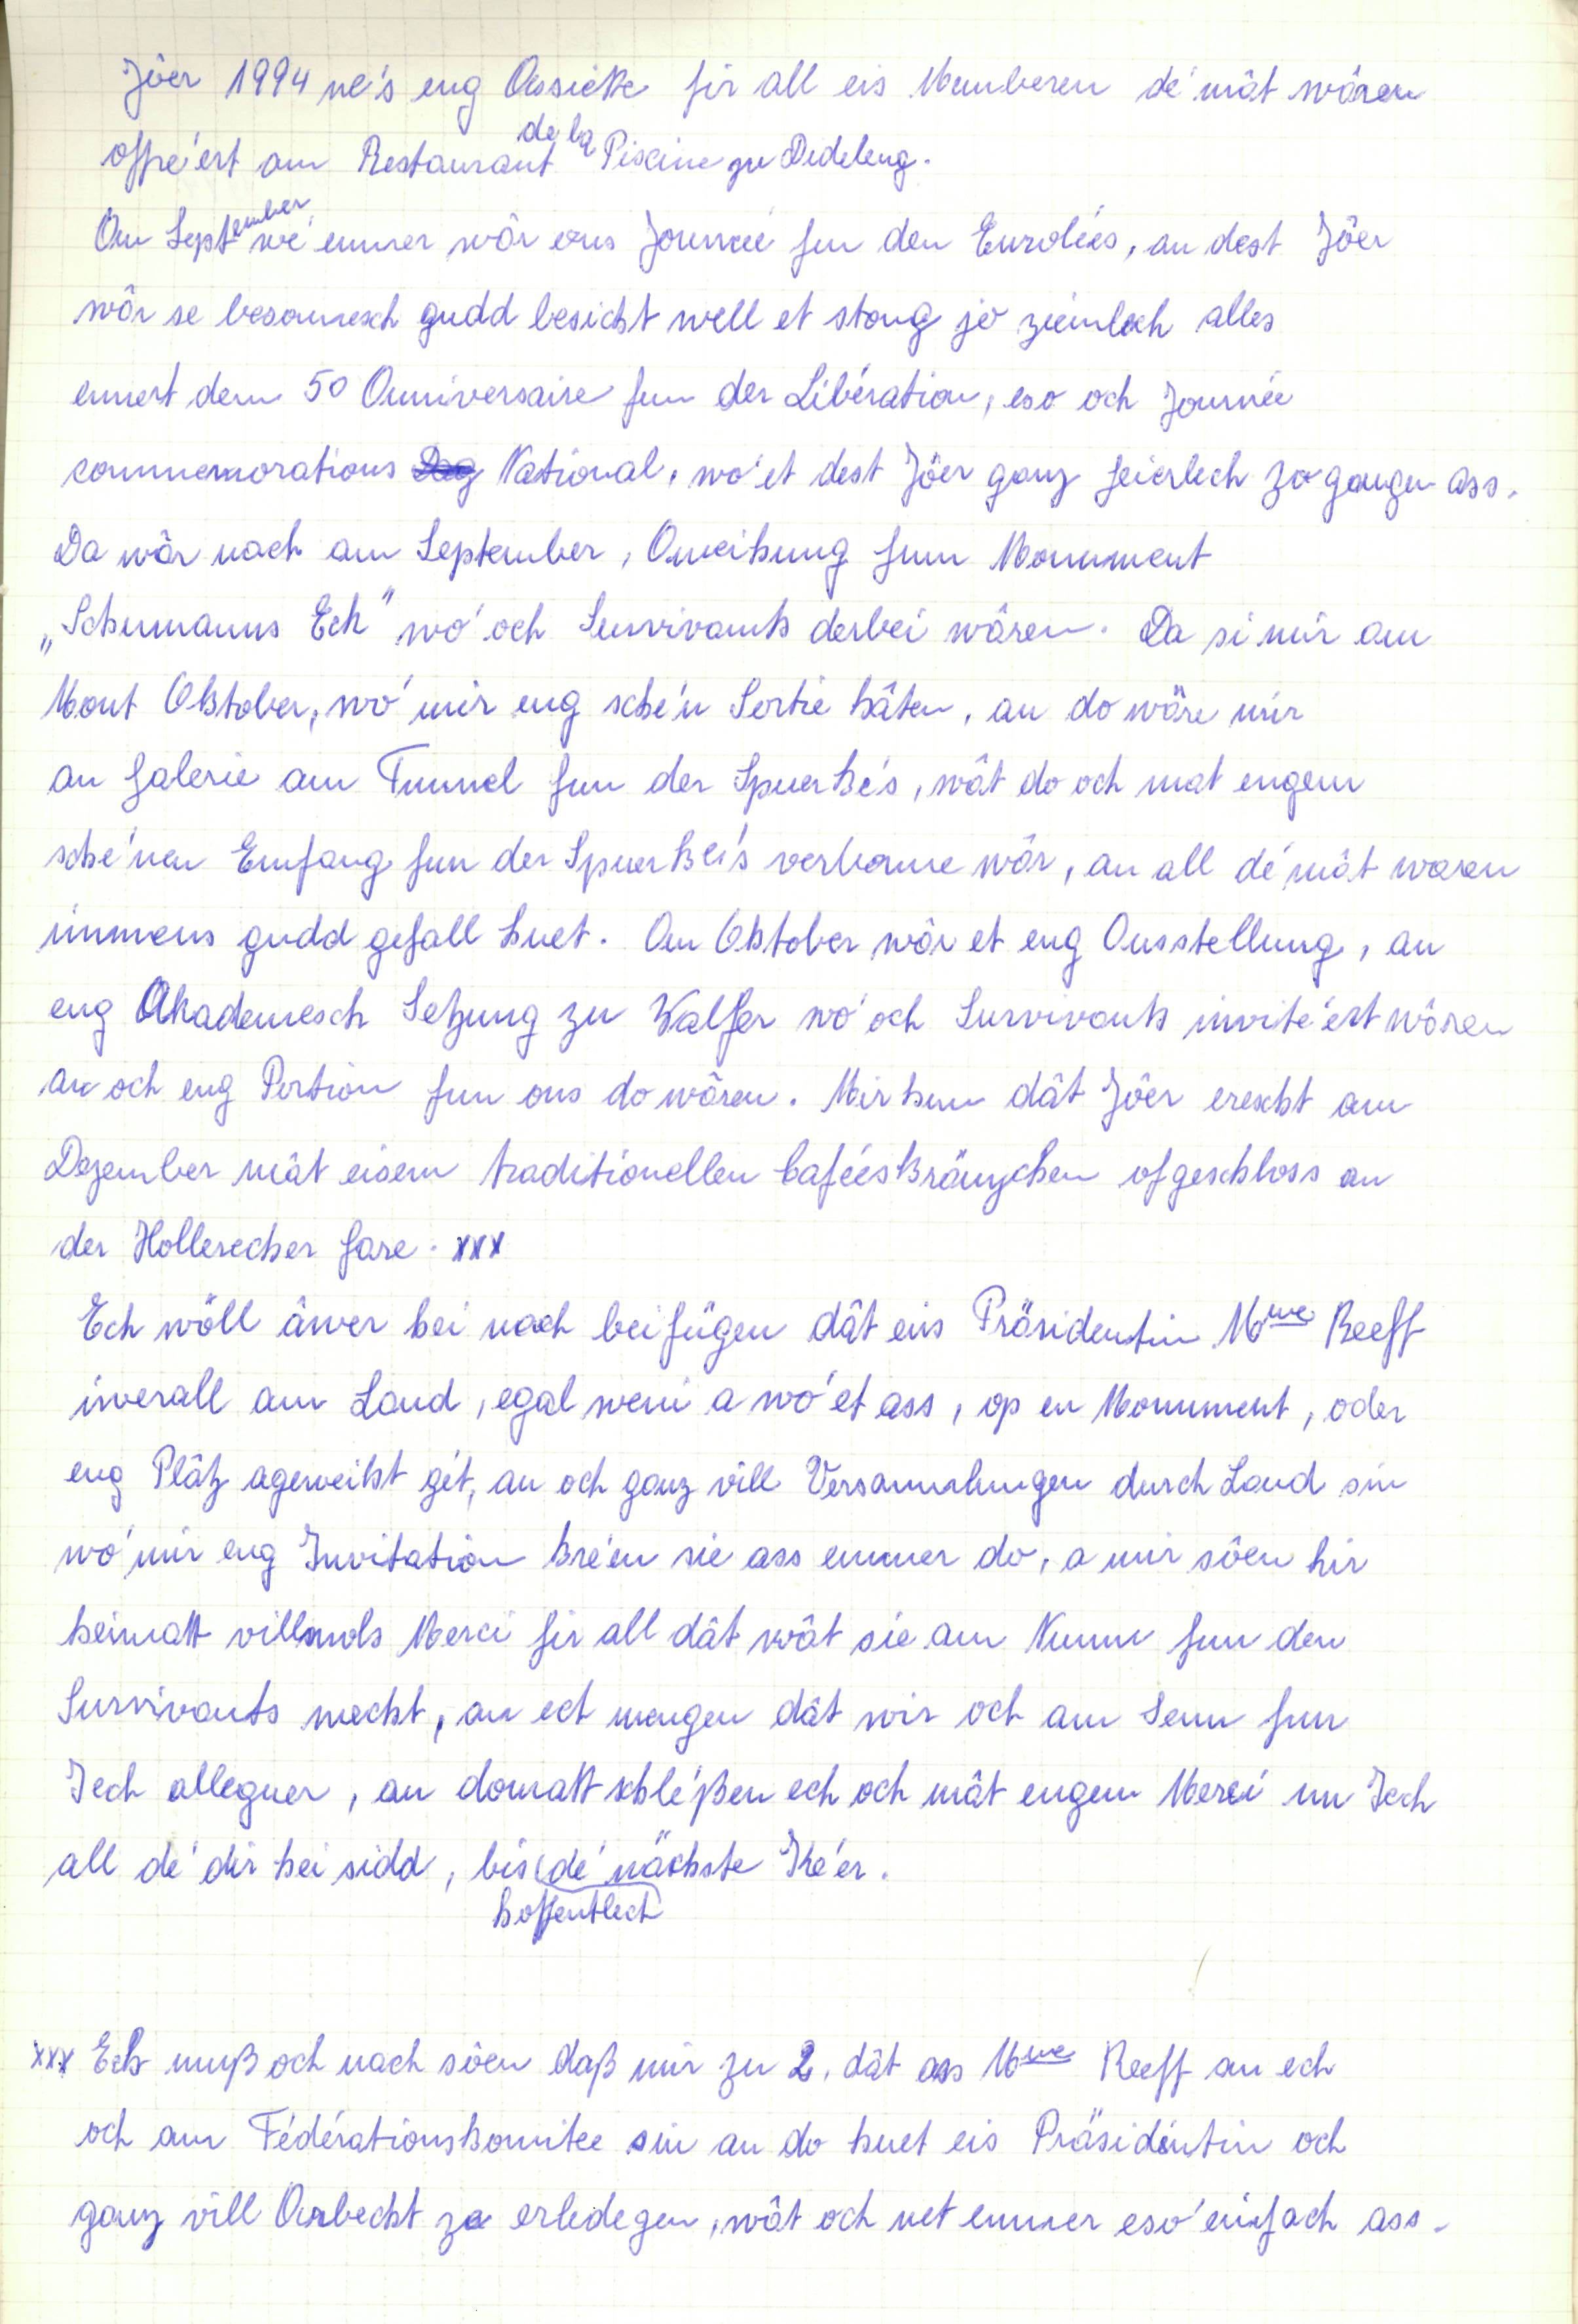 Jôer 1994 ne's eng Assiette fir all eis Memberen de' mât wâren
offre'ert am Restaurant de la Piscine zu Dideleng.
Am September we' ëmmer wôr ons Journeé fun den Enroleés, an dest Jôer
wôr se besonnesch gudd besicht well et stong jo ziemlech alles
ennert dem 50 Anniversaire fun der Libération, eso och Journée
commemorations National, wo' et dest Jôer ganz feierlech zo gangen ass.
Da wôr nach am September, Aweihung fum Monument
„Schumanns Eck" wo' och Survivants derbei wâren. Da si mir am
Mont Oktober, wo' mir eng sche'n Sortie hâten, an do wâre mir
an Galerie am Tunnel fun der Spuerke's, wât do och mat engem
sche'nen Emfang fun der Spuerkei's verbonne wôr, an all de' mât waren
immens gudd gefall huet. Am Oktober wôr et eng Ausstellung, an
eng Akademesch Setzung zu Walfer wo' och Survivants invite'ert wôren
an och eng Portion fun ons do wâren. Mir hun dât Jôer erescht am
Dezember mât eisem traditionellen Cafeéskränzchen ofgeschloss an
der Hollerecher Gare. xxx
Ech wöll âwer hei nach beifügen dât eis Präsidentin Mme Reeff
iwerall am Land, egal weni a wo' et ass, op en Monument, oder
eng Plâtz ageweiht gét, an och ganz vill Versammlungen durch Land sin
wo' mir eng Invitation kre'en sie ass emmer do, a mir sôen hir
heimatt villmols Merci fir all dât wât sie am Numm fun den
Survivants mecht, an ech mengen dât wir och am Senn fun
Iech alleguer, an domatt schle'ßen ech och mât engem Merci un Iech
all de' dir hei sidd, bis de' nächste Ke'er.
hoffentlech
xxx Ech muß och nach sôen daß mir zu 2, dât ass Mme Reeff an ech
och am Fédérationskomitee sin an do huet eis Präsidentin och
ganz vill Arbecht ze erledegen, wât och net emmer eso' einfach ass.